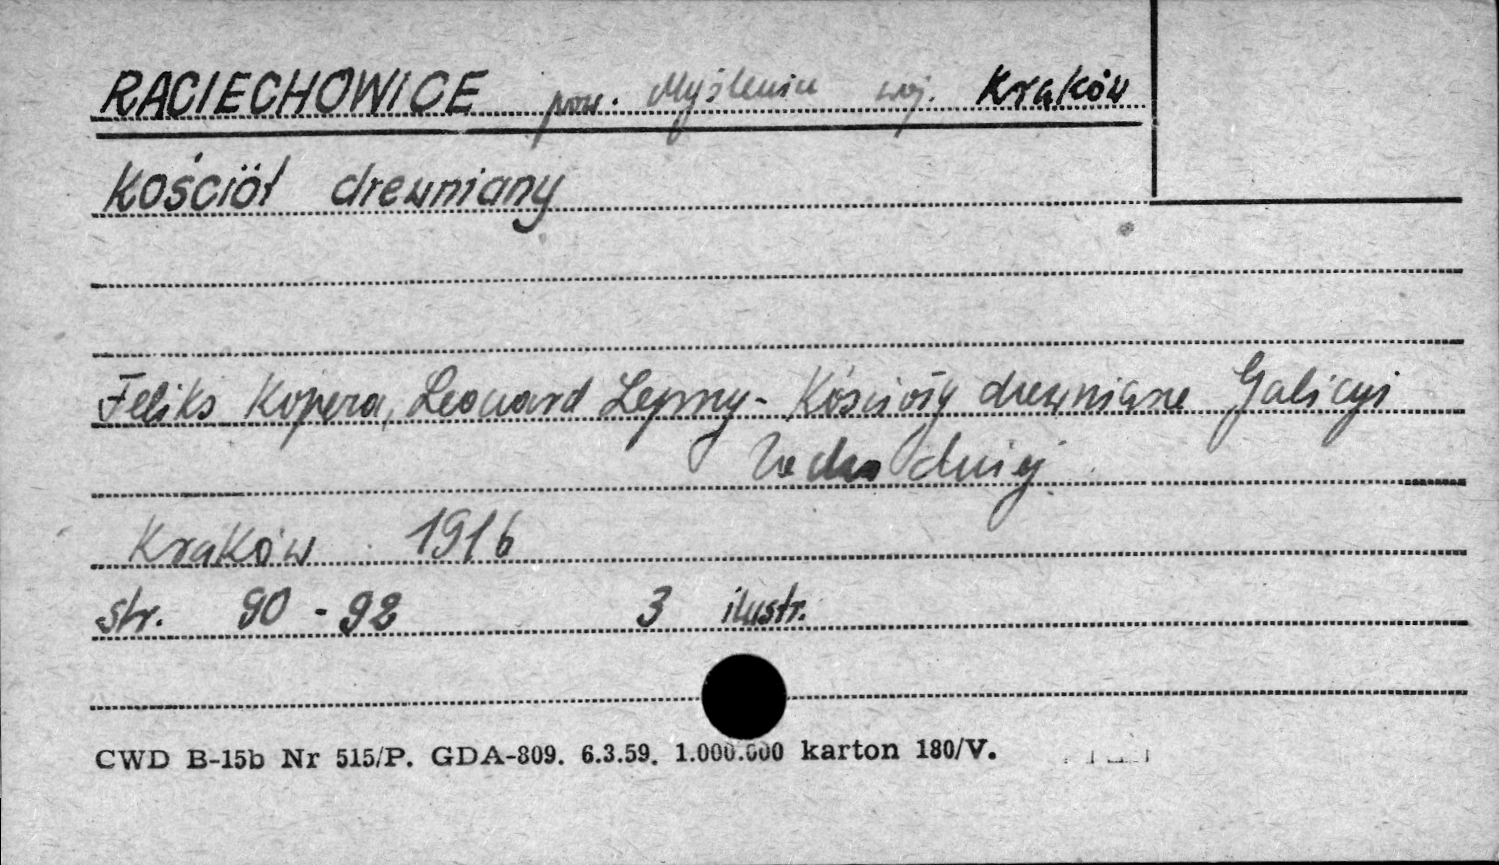 RACIECHOWICE pow. Myślenice woj. Kraków
Kościół drewniany
Feliks Kopera, Leonard Lepszy - Kościoły drewniane Galicyi
Zachodniej
Kraków 1916
str. 90 - 92 3 ilustr.
CWD B-15b Nr 515/P. GDA-809. 6.3.59. 1.000.000 karton 180/V.